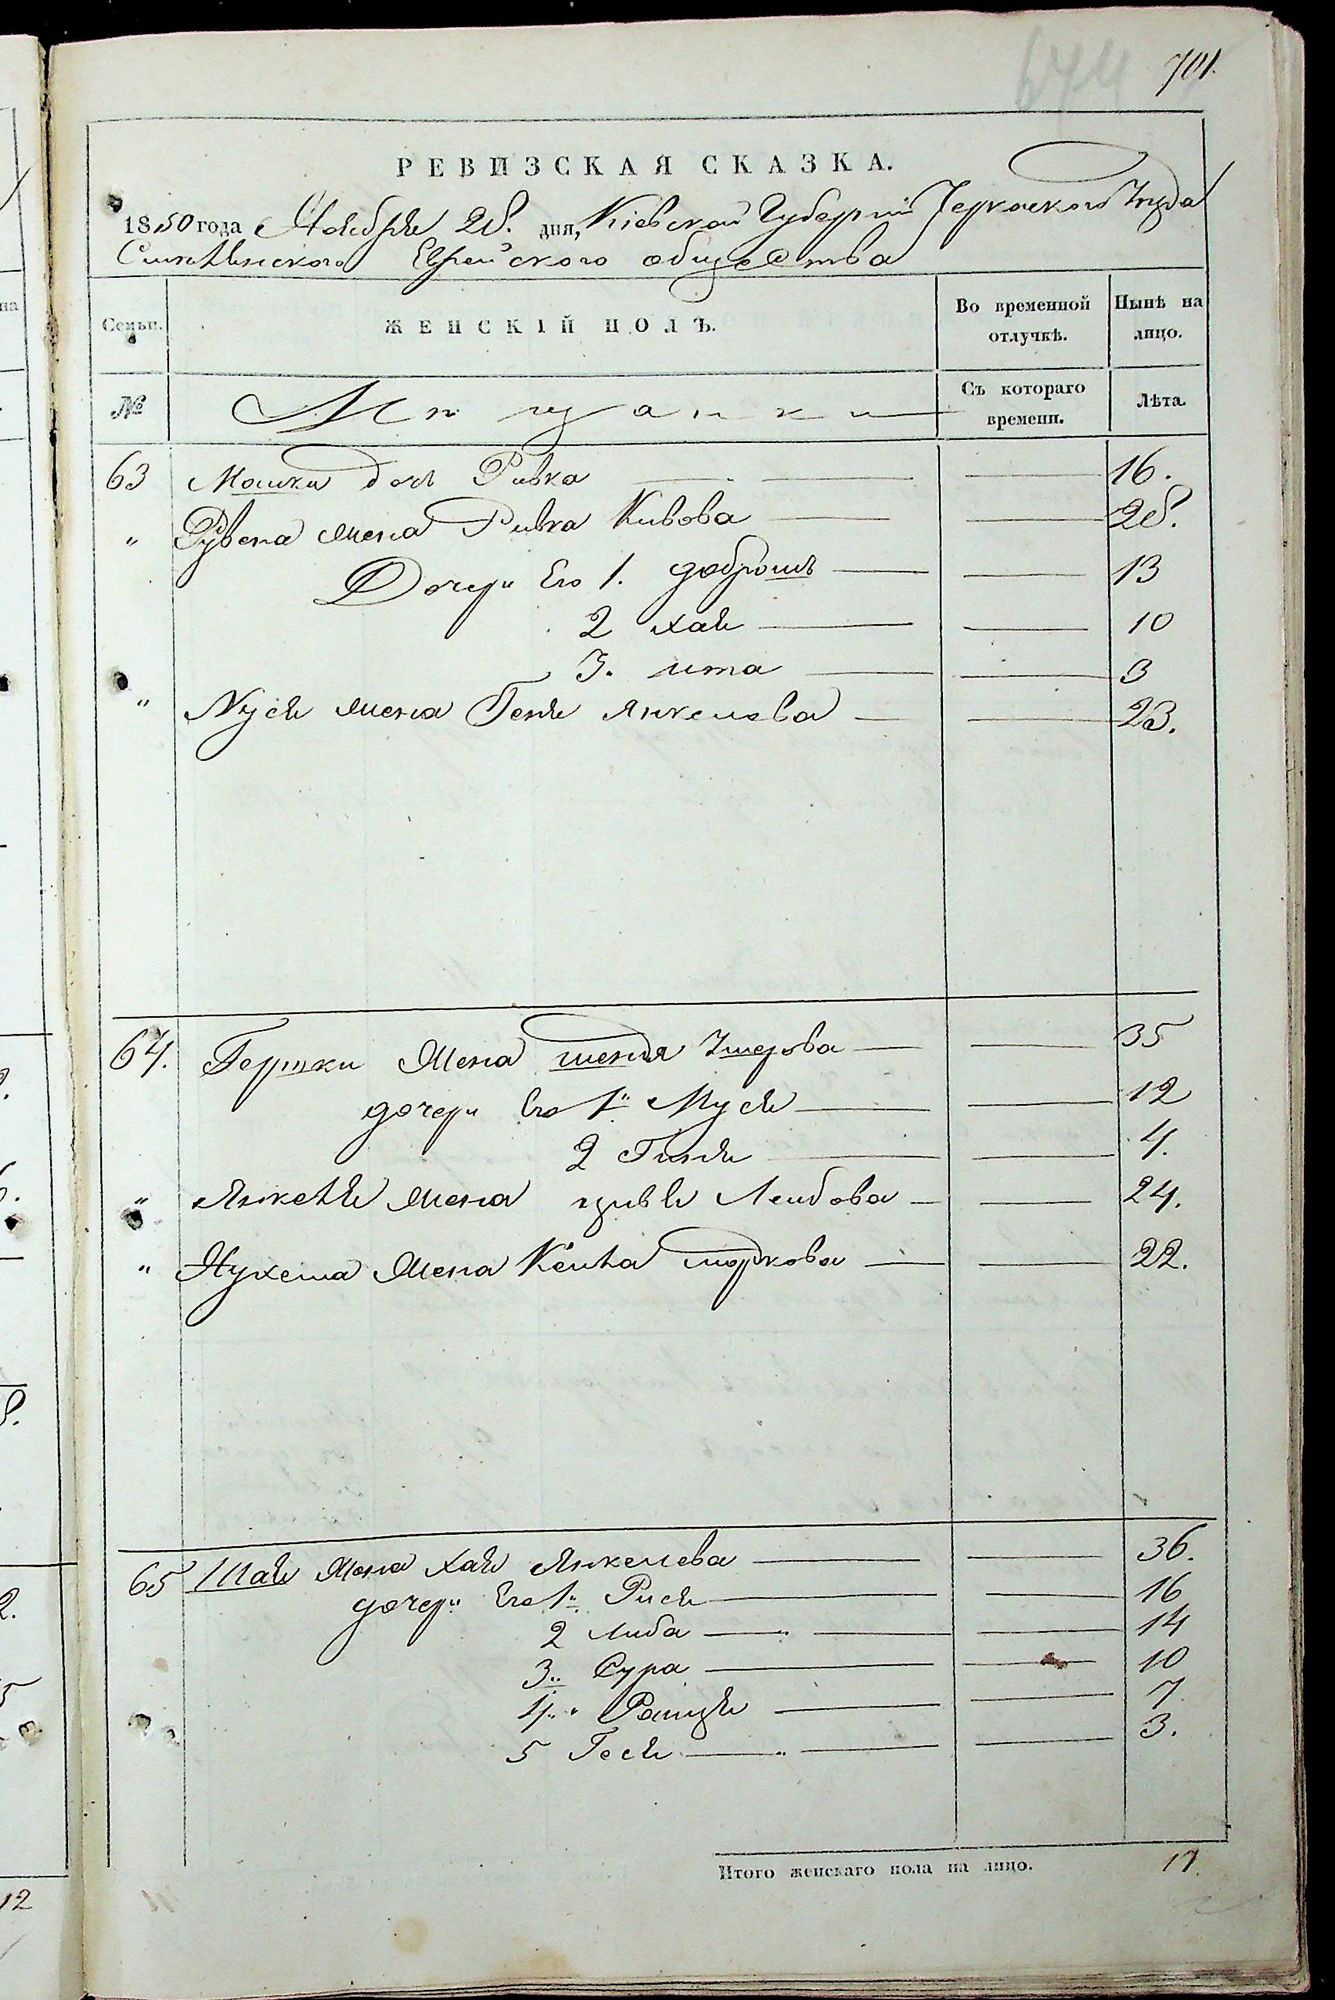 644 701.
РЕВИЗСКАЯ СКАЗКА.
1850 года Октября 28. дня, Кіевской Губерніи Черкаского Уезда
Еврейского общества
Семьи. ЖЕНСКІЙ ПОЛЪ. Во временной отлучкѣ. Нынѣ на лицо.
№ Мещанки Съ котораго времени. Лѣта.
63 Мошки дочь Ривка 16.
" Рувена жена Ривка Кивова 28.
Дочери Его 1. Доброшъ 13
2 Хая 10
3. Ита 3
" Нуся жена Геня Янкелева 23.
64. Гершки жена шендя Ушерова 35
дочери Его 1" Муся 12
2 Гиня 4.
" Янкеля жена цивья Леибова 24.
" Нухема жена Кеила шоркова 22.
65 Шая жена Хая Янкелева 36.
дочери Его 1" Рися 16
2 Либа 14
3" Сура 10
4" Раиця 7
5 Гося 3.
Итого женскаго пола на лицо. 17.
12